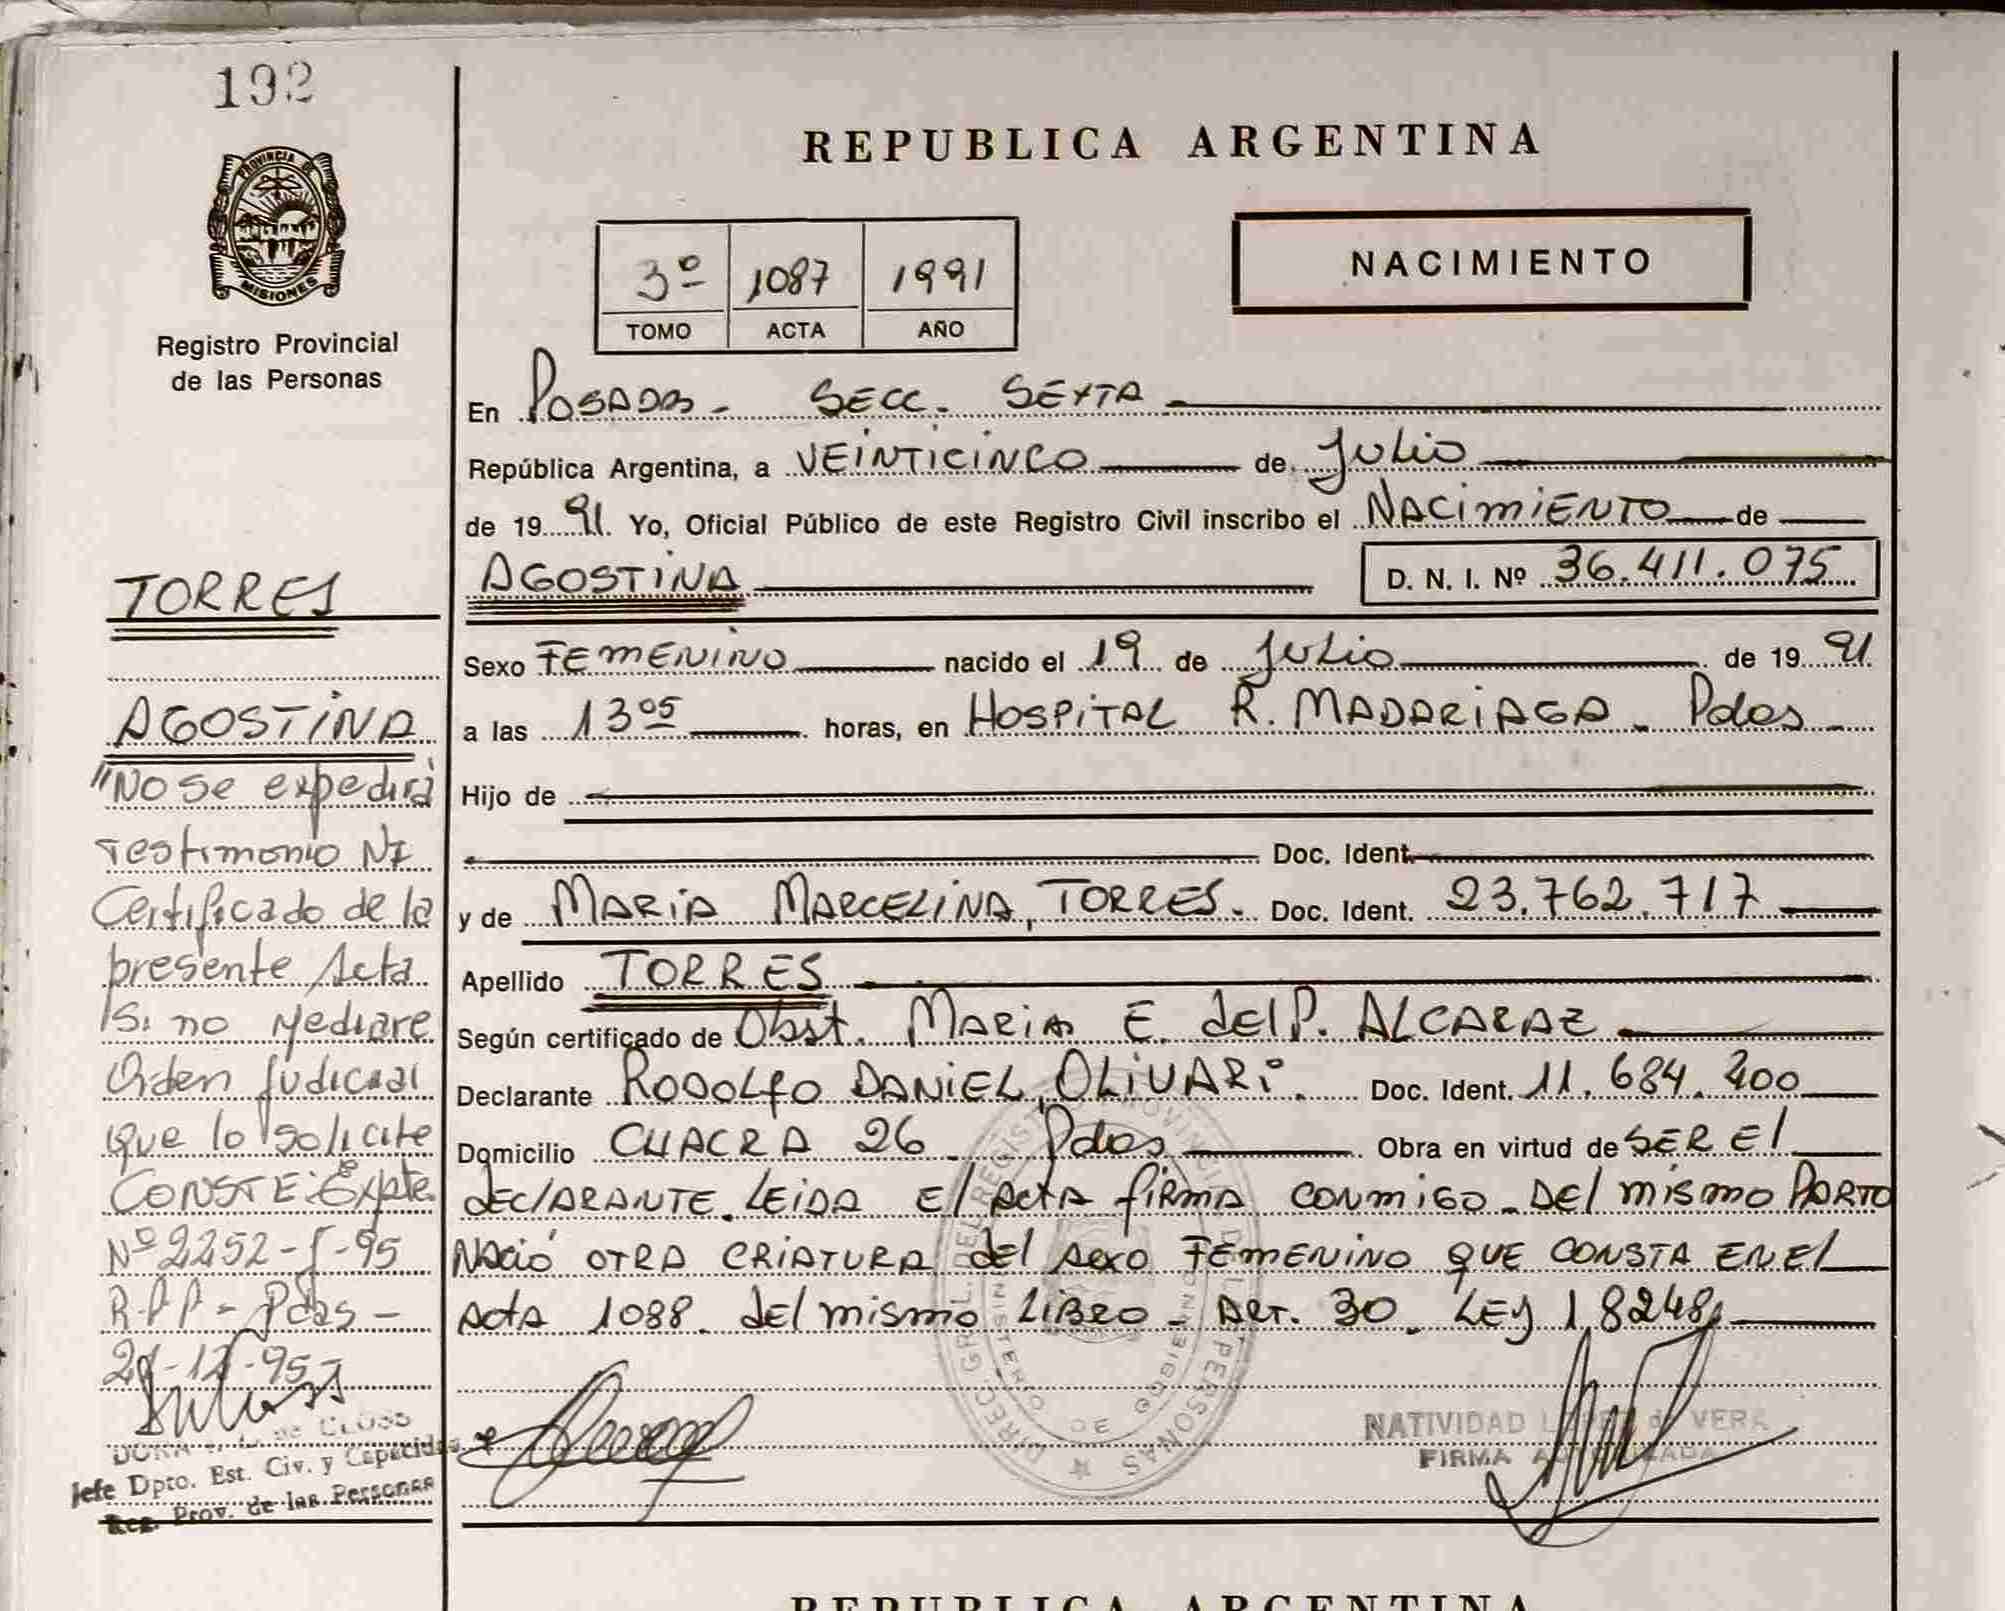 192
PROVINCIA DE
MISIONES
Registro Provincial
de las Personas
TORRES
AGOSTINA
"No se expedirá
Testimonio NI
Certificado de la
presente Acta
Si no mediare
Orden Judicial
que lo solicite
CONSTE: Expte.
Nº 2252-T-95
R.P.P - Pdas -
-12-95
DORA CLOSS
Jefe Dpto. Est. Civ. y Capacidad
Reg. Prov. de las Personas
REPUBLICA ARGENTINA
3º 1087 1991
TOMO ACTA AÑO
NACIMIENTO
En POSADAS - SECC. SEXTA
República Argentina, a VEINTICINCO de Julio
de 19 91. Yo, Oficial Público de este Registro Civil inscribo el NACIMIENTO de
AGOSTINA D. N. I. Nº 36.411.075
Sexo FEMENINO nacido el 19 de Julio de 19 91
a las 13 05 horas, en HOSPITAL R. MADARIAGA - Pdas -
Hijo de
Doc. Ident.
y de MARIA MARCELINA, TORRES. Doc. Ident. 23.762.717
Apellido TORRES
Según certificado de Obst. MARIA E. del P. ALCARAZ
Declarante RODOLFO DANIEL, OLIVARI. Doc. Ident. 11.684.200
Domicilio CHACRA 26 - Pdas Obra en virtud de SER El
DEClARANTE. LEIDA El ActA fiRMA CONMIGO - DEl MISMO PARTO
NACió OTRA CRIATURA del sexo FEMENINO QUE CONSTA EN El
ActA 1088. del mismo LIBRO - ART. 30. LEY 18248.
DIREC. GRAL. DEL REGISTRO PROVINCIAL DE LAS PERSONAS
MINISTERIO DE GOBIERNO
NATIVIDAD LOPEZ de VERA
FIRMA AUTORIZADA
REPUBLICA ARGENTINA